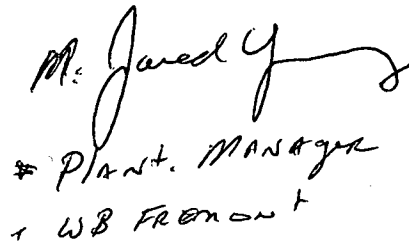 M. Jared Y
* Plant. MANAger
WB FREMONT